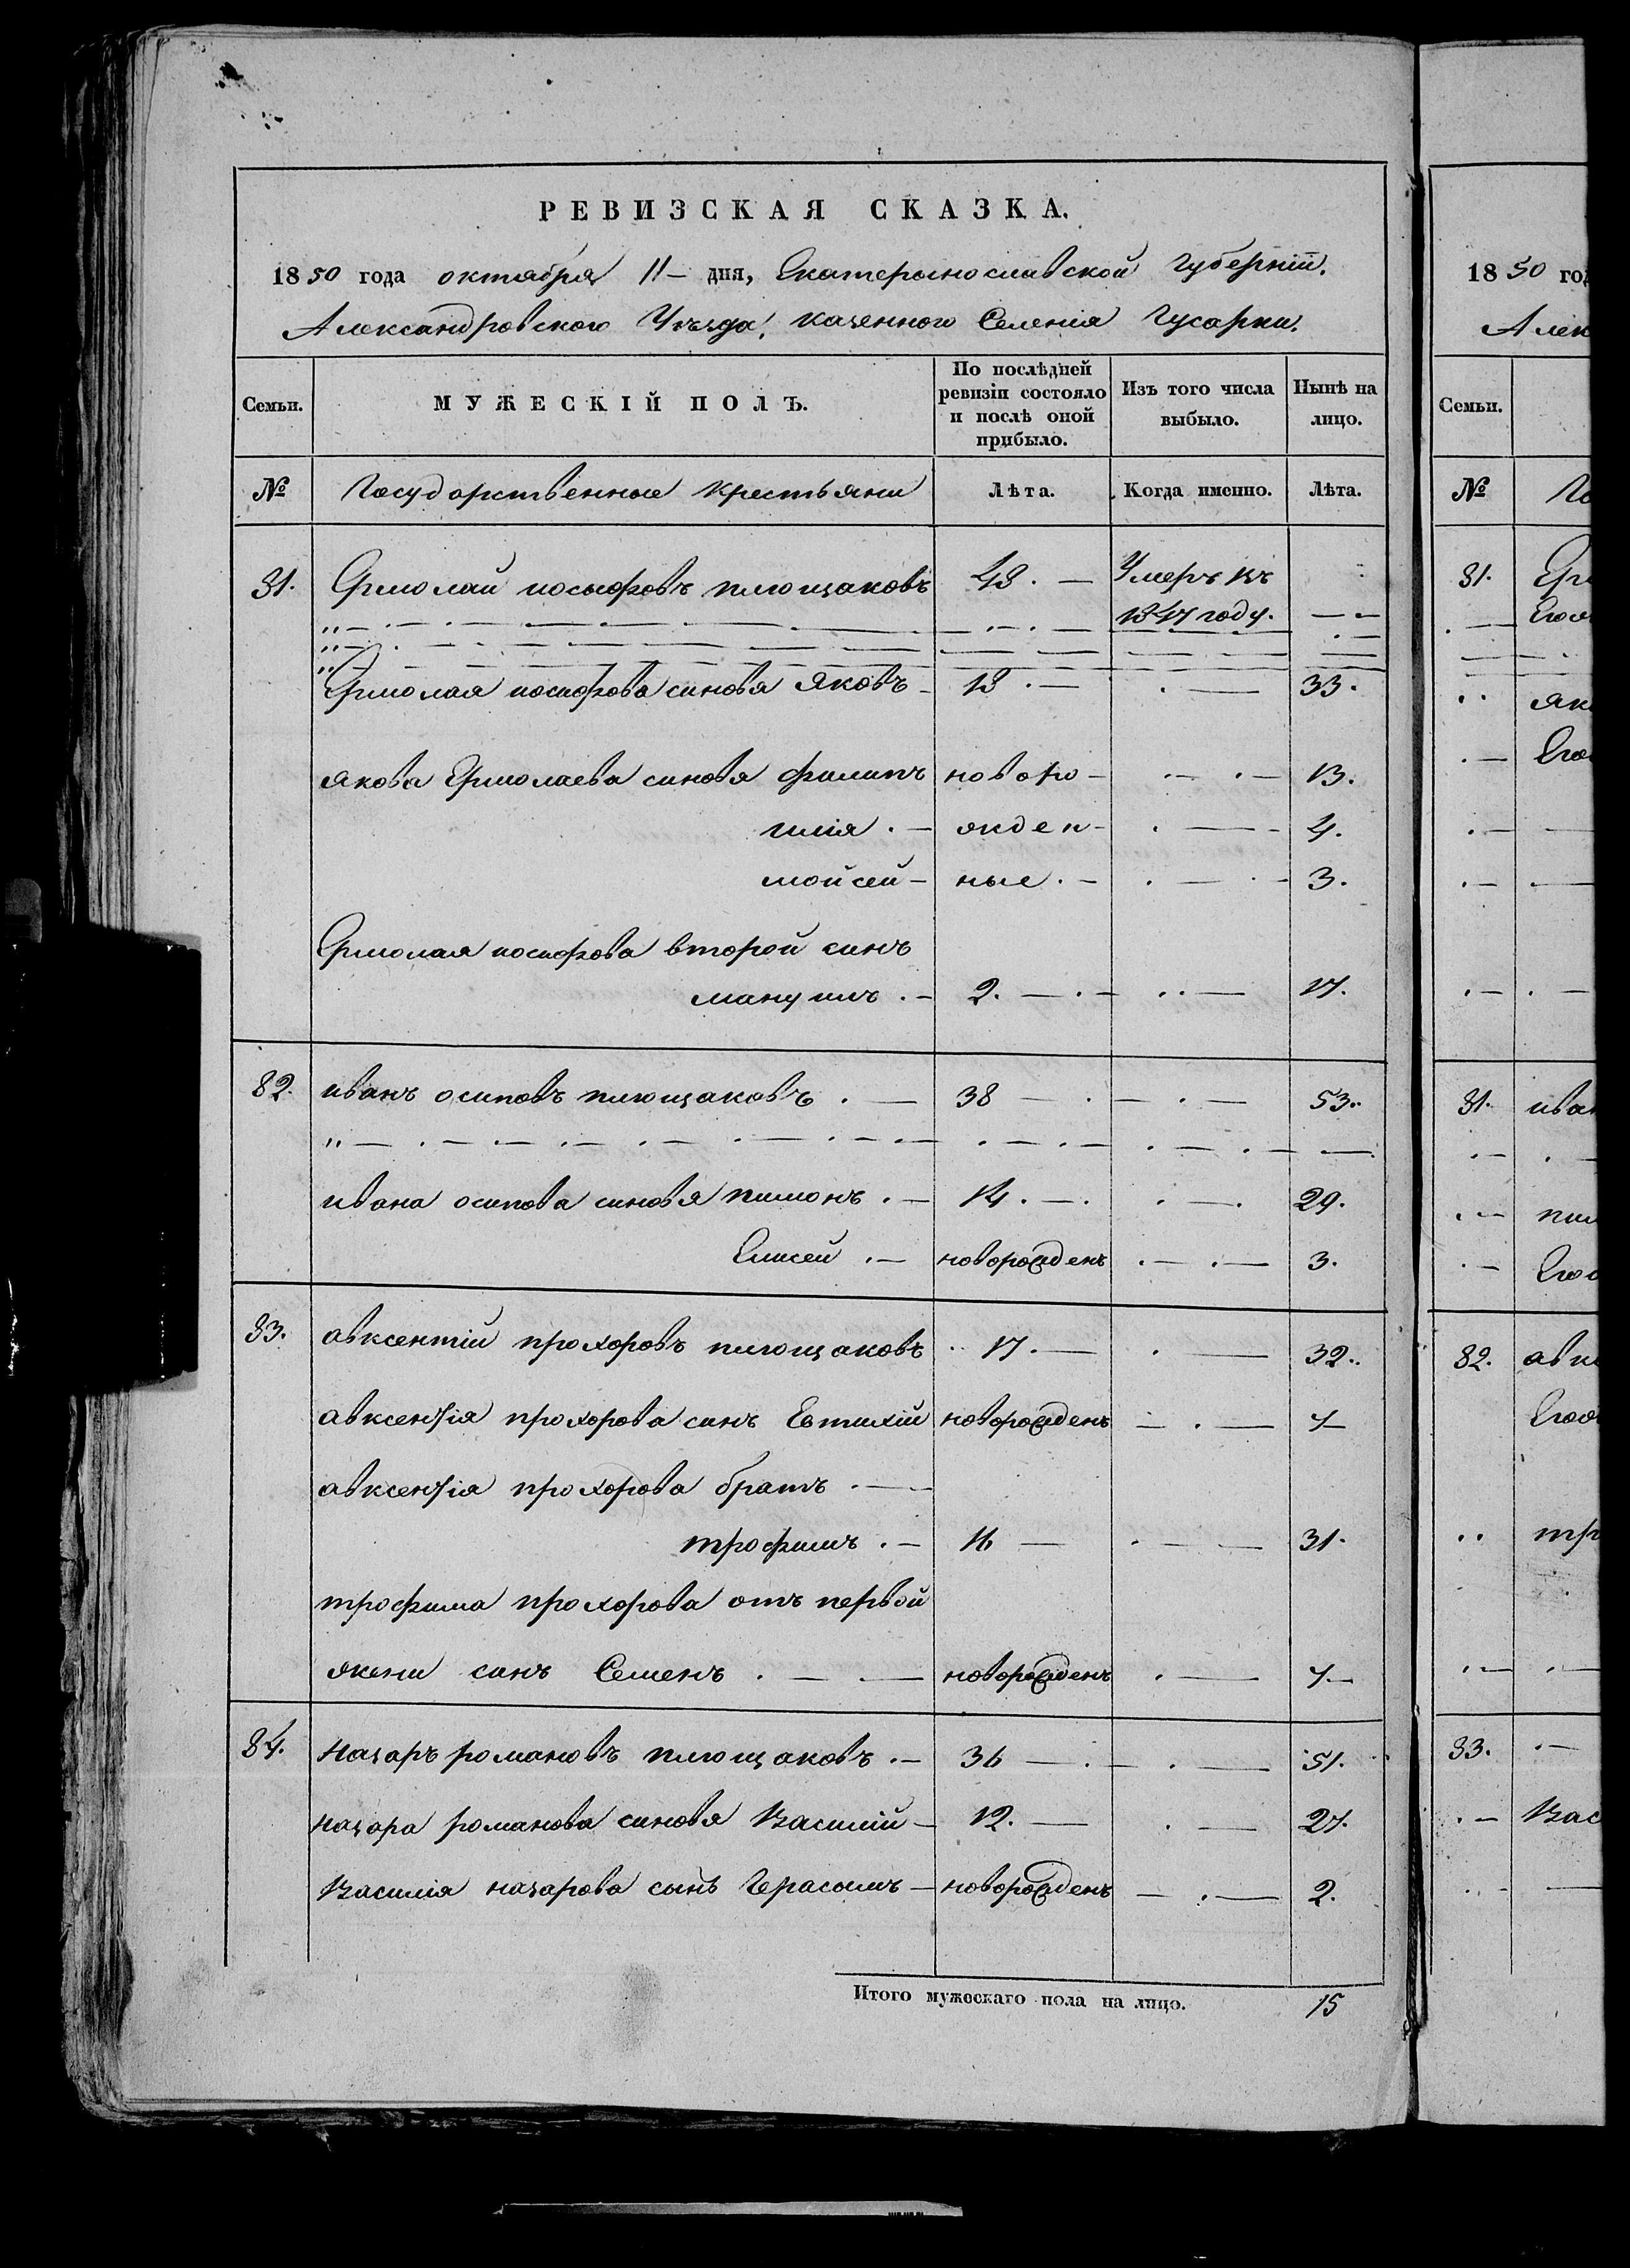 РЕВИЗСКАЯ СКАЗКА.
1850 года октября 11 – дня, Екатеринославской Губерніи.
Александровского Уезда, казенного Селенія Гусарки.
Семьи. МУЖЕСКІЙ ПОЛЪ. По послѣдней ревизіи состояло и послѣ оной прибыло. Изъ того числа выбыло. Нынѣ на лицо.
№ Государственные крестьяни Лѣта. Когда именно. Лѣта.
81. Ермолай иосифовъ плющаковъ 48. – Умеръ въ
1847 году. – –
Ермолая иосифова синовя Яковъ – 18. – . – 33.
якова Ермолаева синовя филипъ новоро – . – . – 13.
илія . – жден – . – 4.
мойсей – ные. – . – 3.
Ермолая иосифова второй синъ
мануилъ . – 2. – . – . . – 17.
82. иванъ осиповъ плющаковъ . – 38 – . – . – 53.
ивана осипова синовя пимонъ . – 14. – . . – . 29.
Елисей . – новорожденъ . – . – 3.
83. авксентій прохоровъ плющаковъ 17. – . – 32.
авксентія прохорова синъ Евтихій новорожденъ – . – 7 –
авксентія прохорова братъ . –
трофимъ . – 16 – . – 31.
трофима прохорова отъ первой
жени синъ Семенъ . – – новорожденъ . – 7 –
84. назаръ романовъ плющаковъ . – 36 – . – . – 51.
назара романова синовя Василій – 12. – . – 27.
Василія назарова сынъ Герасимъ – новорожденъ – . – 2.
Итого мужескаго пола на лицо. 15
1850 год
Алек
Семьи.
№ Го
81. Ерм
Его
як
Его
81. ива
пим
Его
82. авк
Его
тр
83. . –
Вас